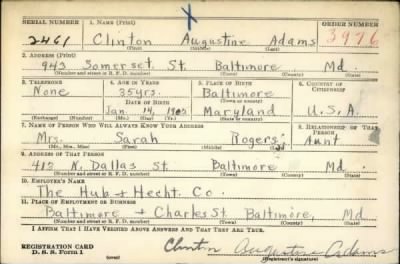 X
SERIAL NUMBER 1. NAME (Print) ORDER NUMBER
2461 Clinton Augustine Adams 3976
2. ADDRESS (Print)
943 Somerset St. Baltimore Md.
(Number and street or R. F. D. number) (Town) (County) (State)
3. TELEPHONE 4. AGE IN YEARS 5. PLACE OF BIRTH 6. COUNTRY OF CITIZENSHIP
None 35 yrs. Baltimore
DATE OF BIRTH (Town or county)
Jan. 14, Maryland U.S.A.
(Exchange) (Number) (Mo.) (Day) (Yr.) (State or country)
7. NAME OF PERSON WHO WILL ALWAYS KNOW YOUR ADDRESS 8. RELATIONSHIP OF THAT PERSON
Mrs. Sarah Rogers Aunt
(Mr., Mrs., Miss) (First) (Middle) (Last)
9. ADDRESS OF THAT PERSON
412 N. Dallas St Baltimore Md.
(Number and street or R. F. D. number) (Town) (County) (State)
10. EMPLOYER'S NAME
The Hub + Hecht. Co.
11. PLACE OF EMPLOYMENT OR BUSINESS
Baltimore + Charles St. Baltimore, Md
(Number and street or R. F. D. number) (Town) (County) (State)
I AFFIRM THAT I HAVE VERIFIED ABOVE ANSWERS AND THAT THEY ARE TRUE.
REGISTRATION CARD
D. S. S. Form 1 (over) Clinton Augustine Adams
(Registrant's signature)